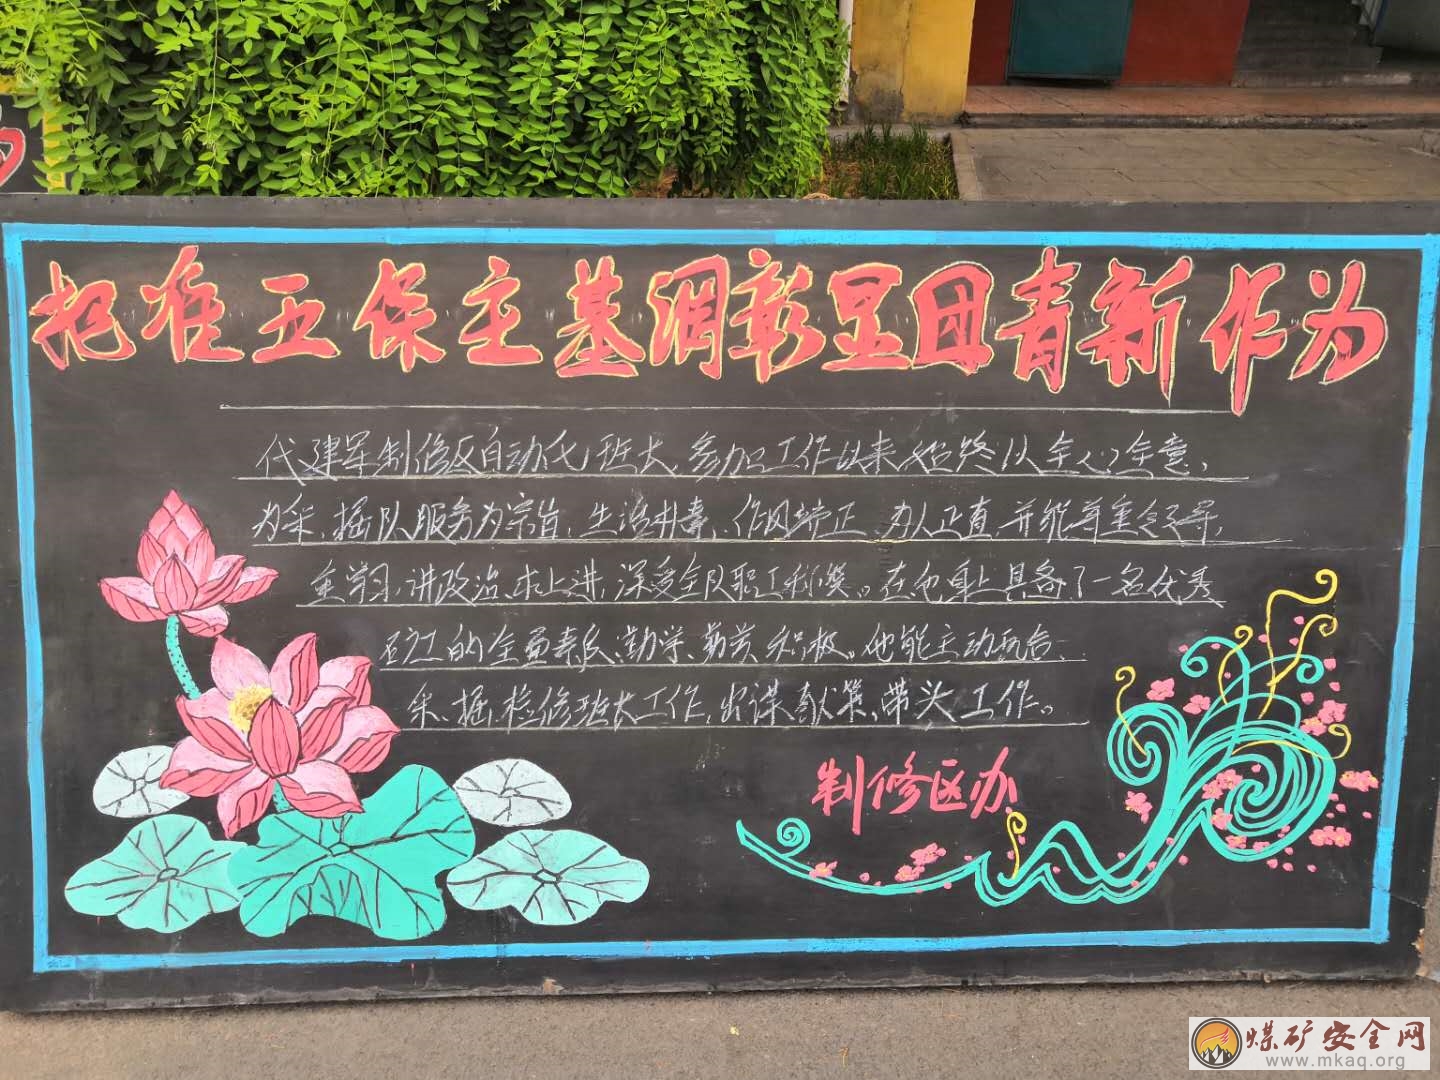 把准五保主基调彰显团青新作为
代建军制修区自动化班长,参加工作以来始终以全心全意,
为采、掘队服务为宗旨,生活朴素、作风端正、为人正直,并能尊重领导,
重学习,讲政治,求上进,深受全队职工称赞。在他身上具备了一名优秀
矿工的全面素质:勤学、勤劳、积极。他能主动配合、
采、掘、检修班长工作,出谋献策,带头工作。
制修区办
煤矿安全网
www.mkaq.org